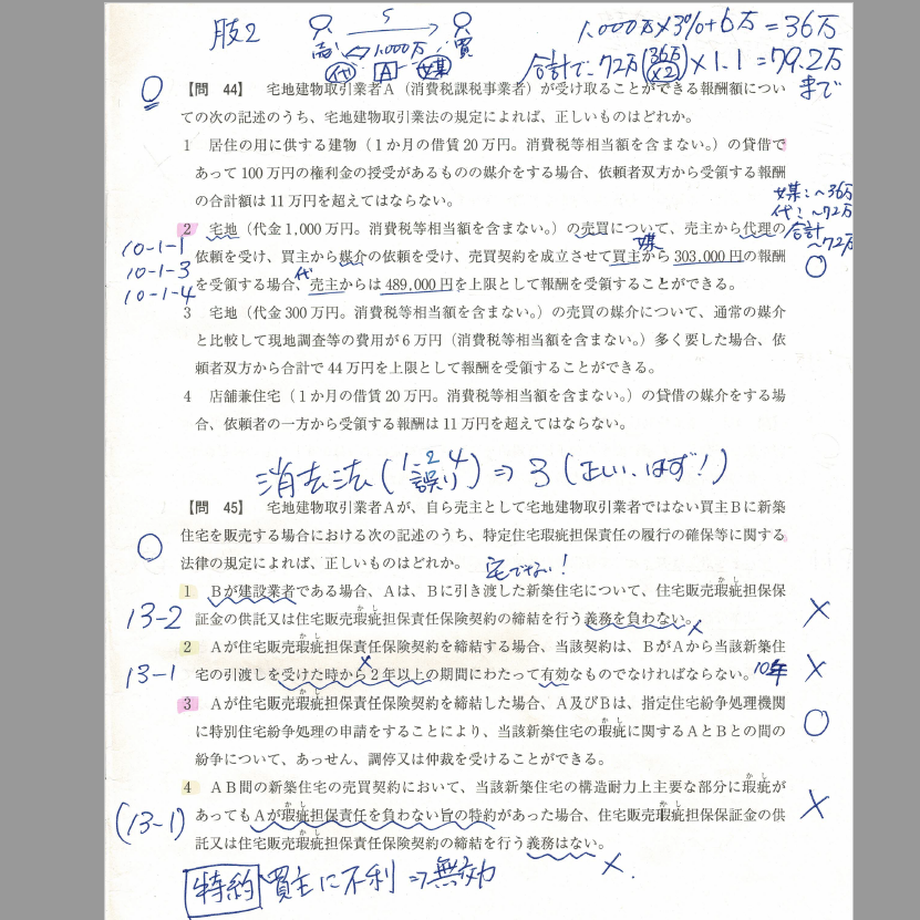 肢2
売 1,000万 買
代 A 媒
1,000万×3%+6万=36万
合計で72万(36万×2)×1.1=79.2万まで
【問 44】 宅地建物取引業者A（消費税課税事業者）が受け取ることができる報酬額につい
ての次の記述のうち、宅地建物取引業法の規定によれば、正しいものはどれか。
1 居住の用に供する建物（1か月の借賃20万円。消費税等相当額を含まない。）の貸借で
あって100万円の権利金の授受があるものの媒介をする場合、依頼者双方から受領する報酬
の合計額は11万円を超えてはならない。
媒:~36万
代:~72万
合計
~72万
2 宅地（代金1,000万円。消費税等相当額を含まない。）の売買について、売主から代理の
10-1-1
10-1-3
10-1-4
媒
依頼を受け、買主から媒介の依頼を受け、売買契約を成立させて買主から303,000円の報酬
代
を受領する場合、売主からは489,000円を上限として報酬を受領することができる。
3 宅地（代金300万円。消費税等相当額を含まない。）の売買の媒介について、通常の媒介
と比較して現地調査等の費用が6万円（消費税等相当額を含まない。）多く要した場合、依
頼者双方から合計で44万円を上限として報酬を受領することができる。
4 店舗兼住宅（1か月の借賃20万円。消費税等相当額を含まない。）の貸借の媒介をする場
合、依頼者の一方から受領する報酬は11万円を超えてはならない。
消去法(1.2 4 誤り)⇒3(正しい、はず!)
【問 45】 宅地建物取引業者Aが、自ら売主として宅地建物取引業者ではない買主Bに新築
住宅を販売する場合における次の記述のうち、特定住宅瑕疵担保責任の履行の確保等に関する
法律の規定によれば、正しいものはどれか。
宅でない!
1 Bが建設業者である場合、Aは、Bに引き渡した新築住宅について、住宅販売瑕疵担保保
13-2
証金の供託又は住宅販売瑕疵担保責任保険契約の締結を行う義務を負わない。
2 Aが住宅販売瑕疵担保責任保険契約を締結する場合、当該契約は、BがAから当該新築住
13-1
宅の引渡しを受けた時から2年以上の期間にわたって有効なものでなければならない。 10年
3 Aが住宅販売瑕疵担保責任保険契約を締結した場合、A及びBは、指定住宅紛争処理機関
に特別住宅紛争処理の申請をすることにより、当該新築住宅の瑕疵に関するAとBとの間の
紛争について、あっせん、調停又は仲裁を受けることができる。
4 AB間の新築住宅の売買契約において、当該新築住宅の構造耐力上主要な部分に瑕疵が
(13-1)
あってもAが瑕疵担保責任を負わない旨の特約があった場合、住宅販売瑕疵担保保証金の供
託又は住宅販売瑕疵担保責任保険契約の締結を行う義務はない。
特約 買主に不利⇒無効